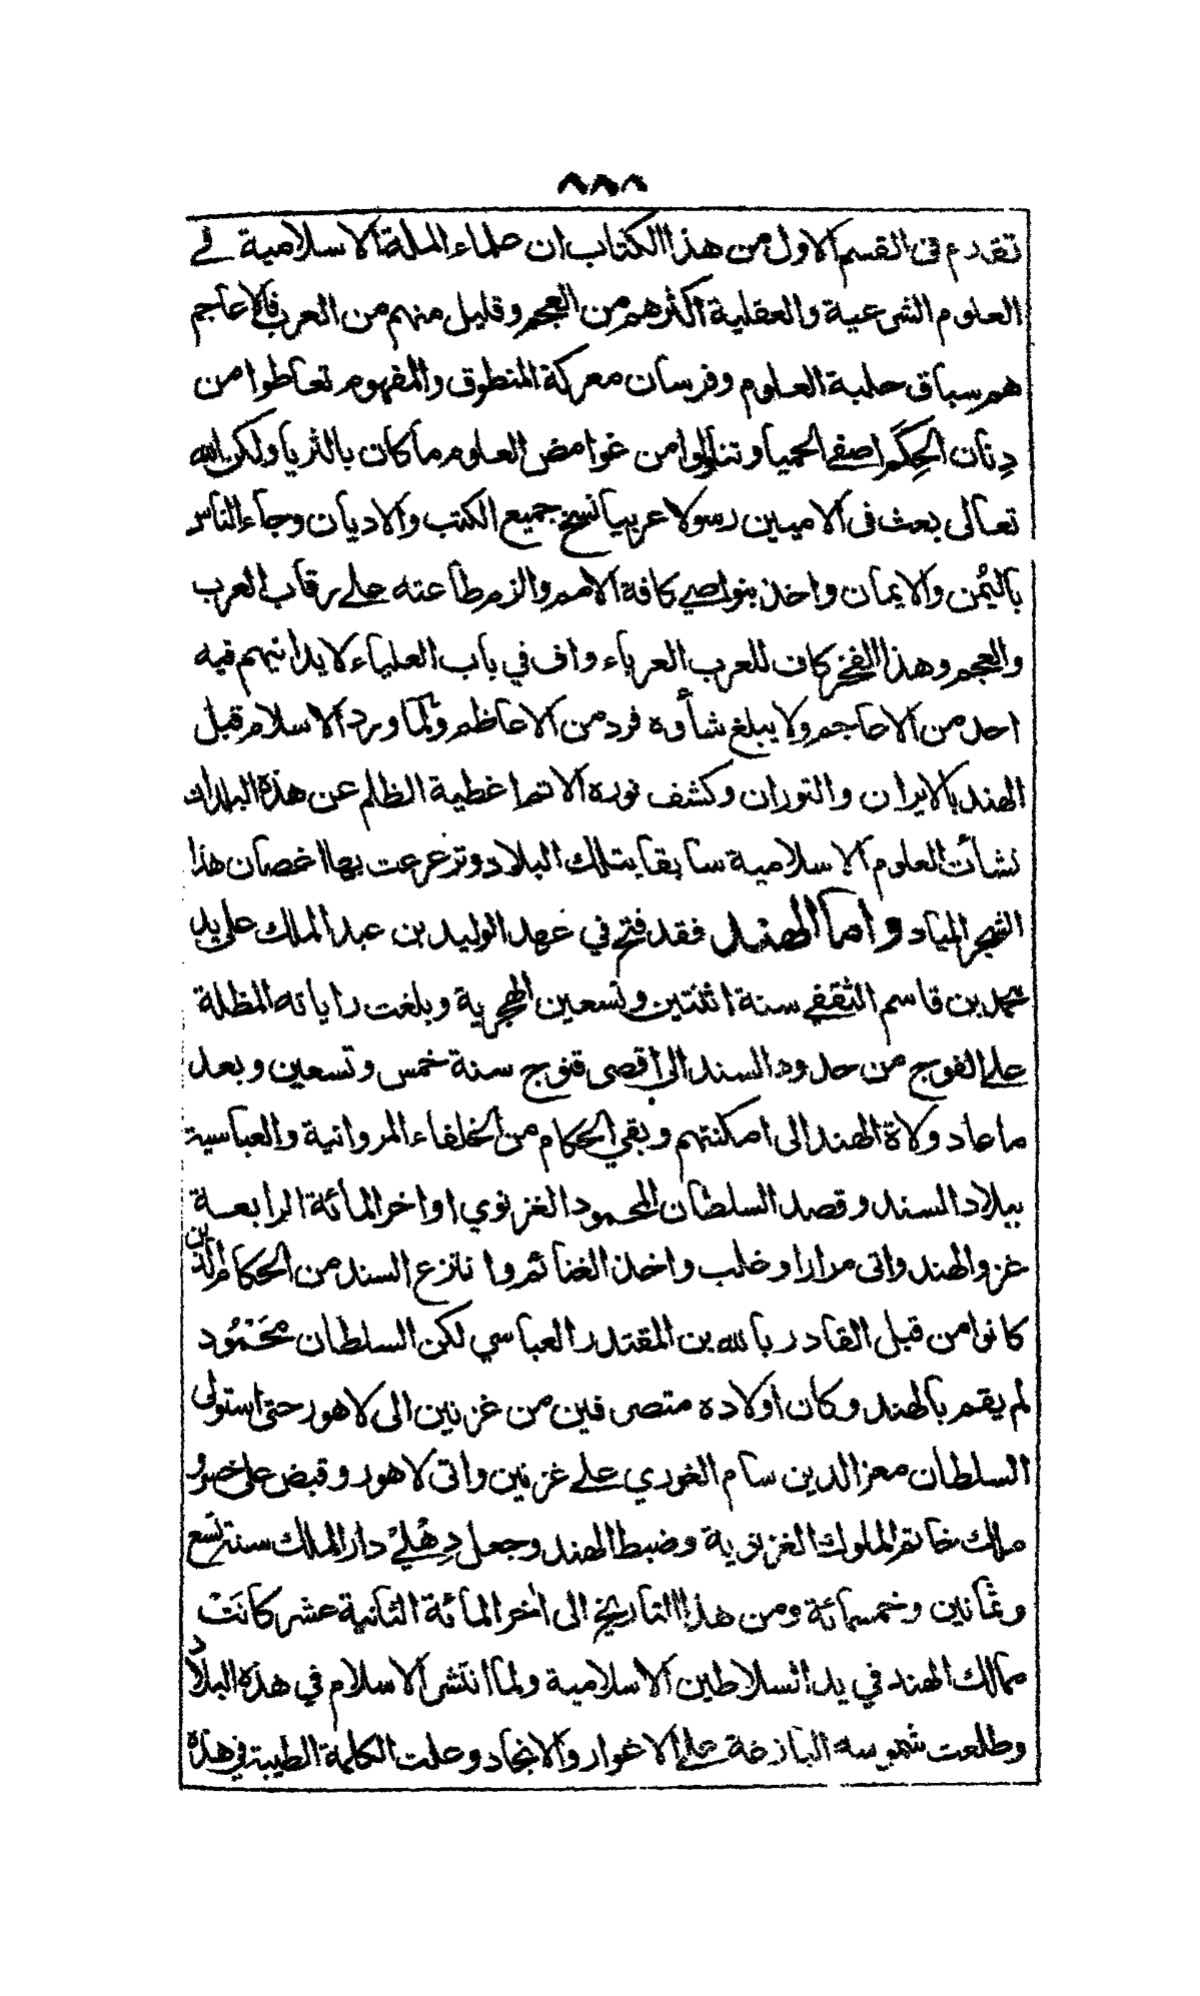 ٨٨٨
تقدم فى القسم الاول من هذا الكتاب ان علماء الملة الاسلامية في
العلوم الشرعية والعقلية اكثرهم من العجم وقليل منهم من العرب فالاعاجم
هم سباق حلبة العلوم وفرسان معركة المنطوق والمفهوم تعاطوا من
دِنان الحِكَم اصفى الحميا وتناولوا من غوامض العلوم ما كان بالثريا ولكن الله
تعالى بعث فى الاميين رسولا عربيا نسخ جميع الكتب والاديان وجاء الناس
باليُمن والايمان واخذ بنواصي كافة الامم والزم طاعته على رقاب العرب
والعجم وهذا الفخر كان للعرب العرباء واف في باب العلياء لا يدانيهم فيه
احد من الاعاجم ولا يبلغ شأوه فرد من الاعاظم ولما ورد الاسلام قبل
الهند بالايران والتوران وكشف نوره الاتم اغطية الظلم عن هذه البلدان
نشأت العلوم الاسلامية سابقا بتلك البلاد وترعرعت بها اغصان هذا
الشجر المياد واما الهند فقد فتح في عهد الوليد بن عبد الملك على يد
محمد بن قاسم الثقفي سنة اثنتين وتسعين الهجرية وبلغت راياته المظلة
على الفوج من حدود السند الى اقصى قنوج سنة خمس وتسعين وبعد
ما عاد ولاة الهند الى امكنتهم وبقي الحكام من الخلفاء المروانية والعباسية
ببلاد السند وقصد السلطان المحمود الغزنوي اواخر المائة الرابعة
غزو الهند واتى مرارا وغلب واخذ الغنائم وانتزع السند من الحكام الذين
كانوا من قبل القادر بالله بن المقتدر العباسي لكن السلطان محَمُود
لم يقم بالهند وكان اولاده متصرفين من غزنين الى لاهور حتى استولى
السلطان معز الدين سام الغوري على غزنين واتى لاهور وقبض على خسرو
ملك خاتم الملوك الغزنوية وضبط الهند وجعل دِهْلي دار الملك سنة تسع
وثمانين وخمسمائة ومن هذا التاريخ الى آخر المائة الثانية عشر كانَتْ
ممالك الهند في يد السلاطين الاسلامية ولما انتشر الاسلام في هذه البلاد
وطلعت شموسه البازغة على الاغوار والانجاد وعلت الكلمة الطيبة في هذه